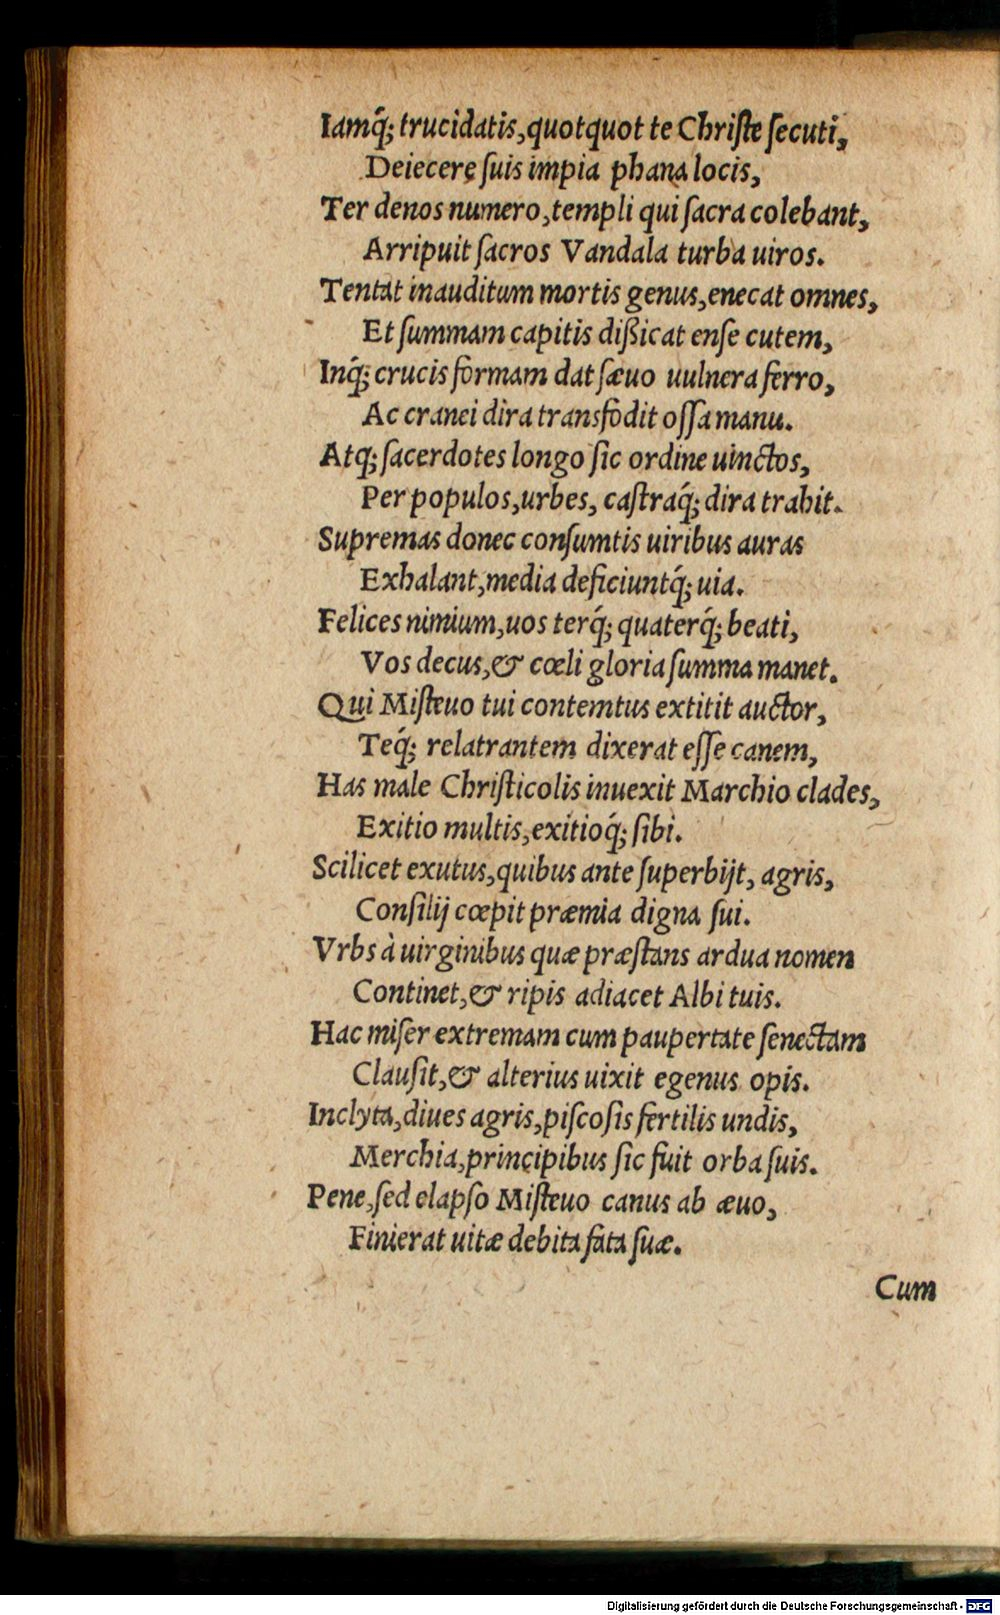 Iamq́; trucidatis, quotquot te Chriſte ſecuti,
Deiecere ſuis impia phana locis,
Ter denos numero, templi qui ſacra colebant,
Arripuit ſacros Vandala turba uiros.
Tentat inauditum mortis genus, enecat omnes,
Et ſummam capitis dißicat enſe cutem,
Inq́; crucis formam dat ſæuo uulnera ferro,
Ac cranei dira transfodit oſſa manu.
Atq; ſacerdotes longo ſic ordine uinctos,
Per populos, urbes, caſtraq́; dira trahit.
Supremas donec conſumtis uiribus auras
Exhalant, media deficiuntq́; uia.
Felices nimium, uos terq́; quaterq́; beati,
Vos decus, & cœli gloria ſumma manet.
Qui Miſteuo tui contemtus extitit auctor,
Teq́; relatrantem dixerat eſſe canem,
Has male Chriſticolis inuexit Marchio clades,
Exitio multis, exitioq́; ſibi.
Scilicet exutus, quibus ante ſuperbijt, agris,
Conſilij cœpit præmia digna ſui.
Vrbs à uirginibus quæ præſtans ardua nomen
Continet, & ripis adiacet Albi tuis.
Hac miſer extremam cum paupertate ſenectam
Clauſit, & alterius uixit egenus opis.
Inclyta, diues agris, piſcoſis fertilis undis,
Merchia, principibus ſic fuit orba ſuis.
Pene, ſed elapſo Miſteuo canus ab æuo,
Finierat uitæ debita fata ſuæ.
Cum
Digitalisierung gefördert durch die Deutsche Forschungsgemeinschaft - DFG